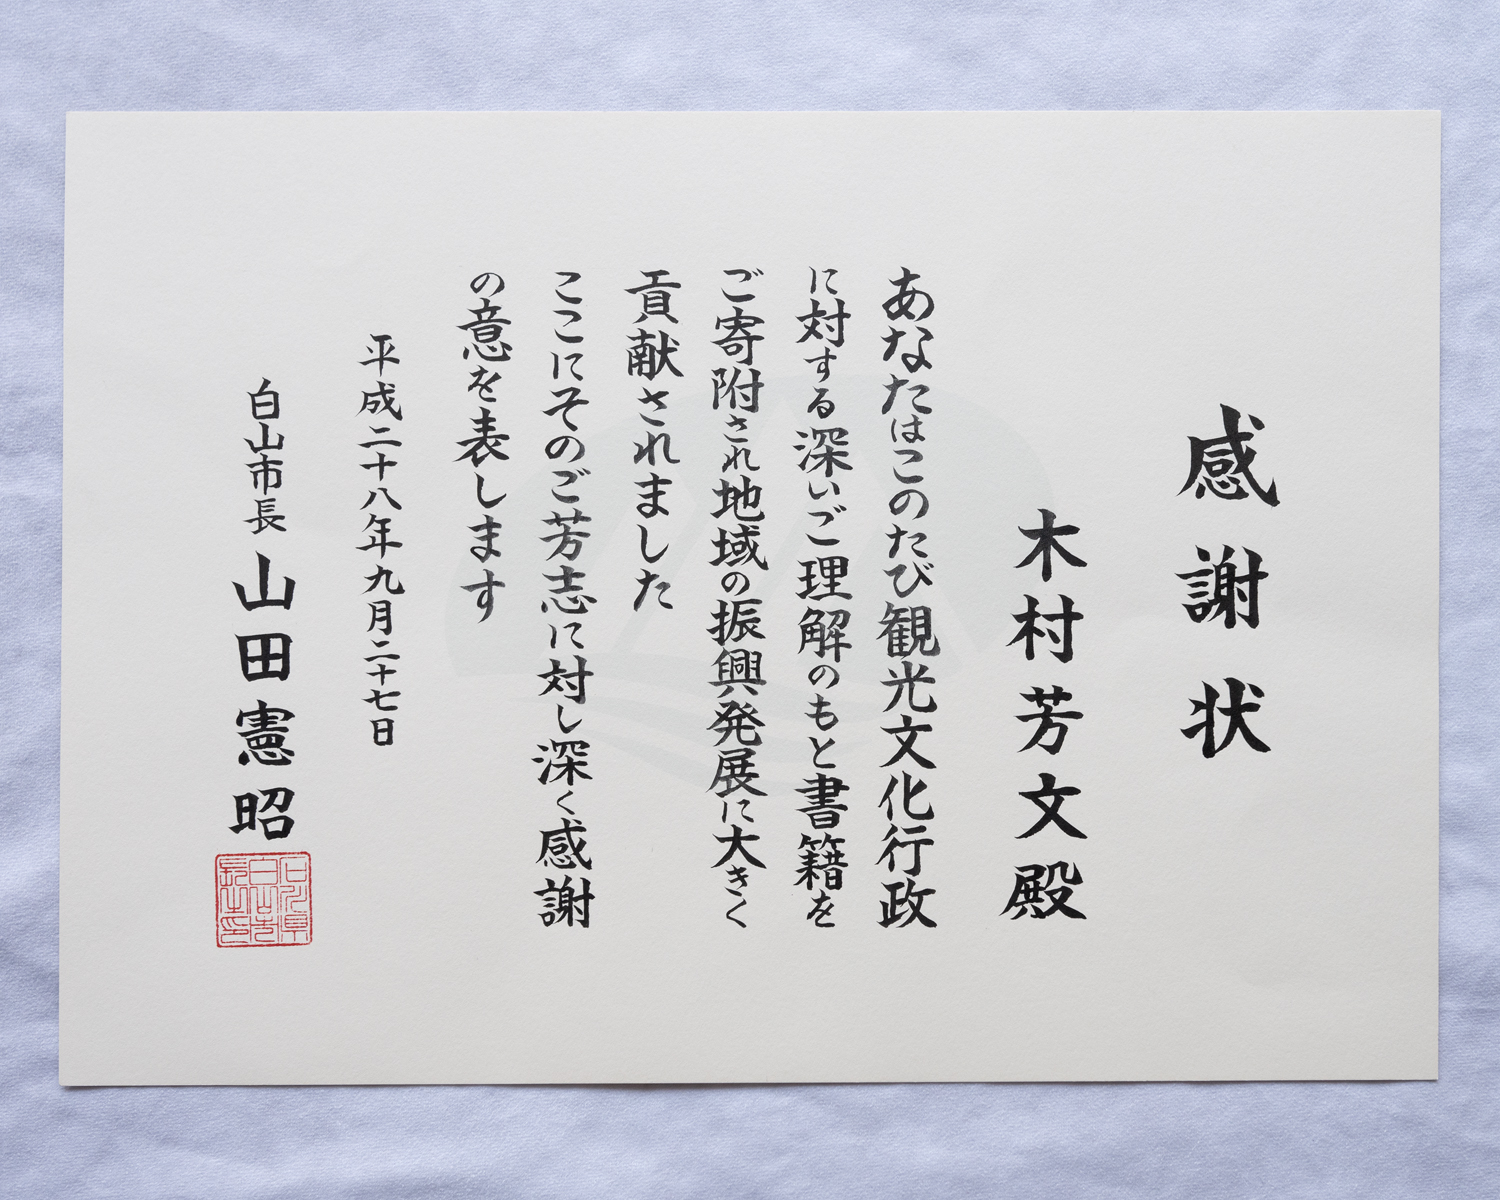 感謝状
木村芳文殿
あなたはこのたび観光文化行政
に対する深いご理解のもと書籍を
ご寄附され地域の振興発展に大きく
貢献されました
ここにそのご芳志に対し深く感謝
の意を表します
平成二十八年九月二十七日
白山市長 山田憲昭